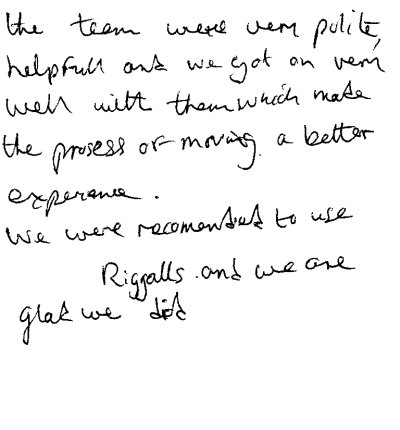 the team were very polite,
helpfull and we got on very
well with them which made
the prosess of moving a better
experance.
We were recomended to use
Riggalls. and we are
glad we did